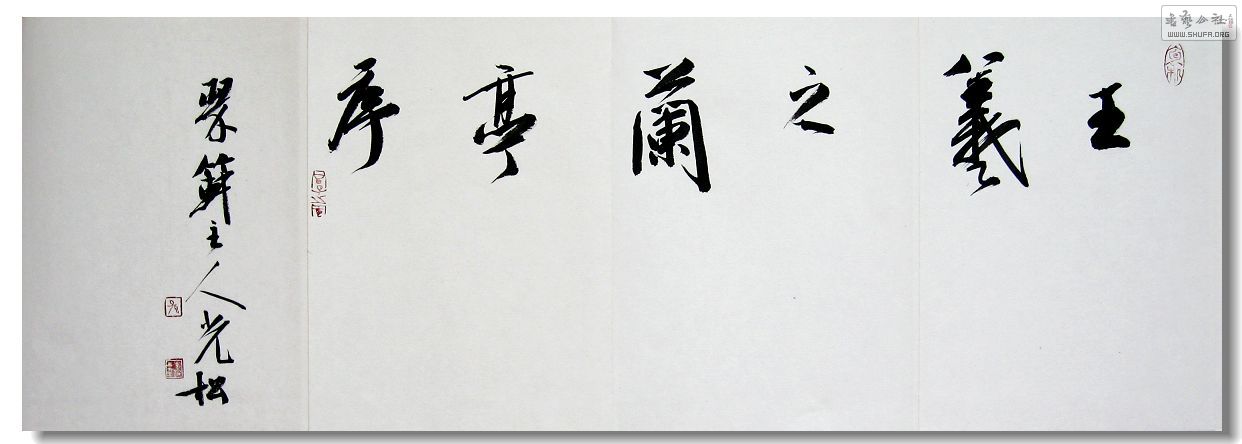 王羲之蘭亭序
主人光松
书艺公社
WWW.SHUFA.ORG